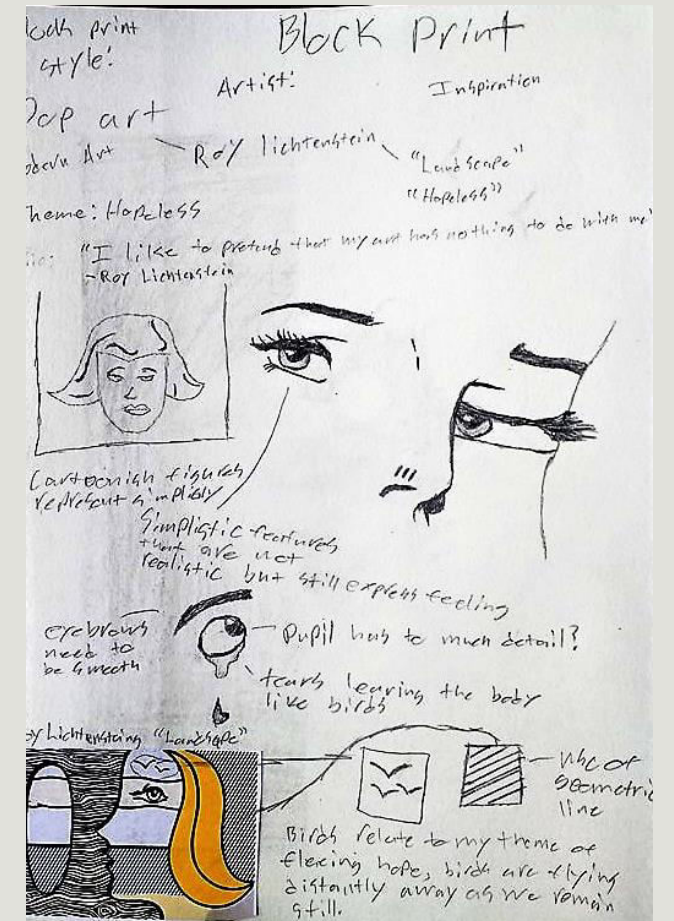 Block Print
lock print
style:
Artist:
Inspiration
Pop art
odern Art
Roy lichtenstein
"Landscape"
"Hopeless"
heme: Hopeless
"I like to pretend that my art has nothing to do with me"
-Roy Lichtenstein
Cartoonish figures
represent simplicly
Simplistic features
that are not
realistic but still express feeling
eyebrows
need to
be smooth
Pupil has to much detail?
tears leaving the body
like birds
oy Lichtensteins "Landscape"
use of
geometric
line
Birds relate to my theme of
fleeing hope, birds are flying
distantly away as we remain
still.